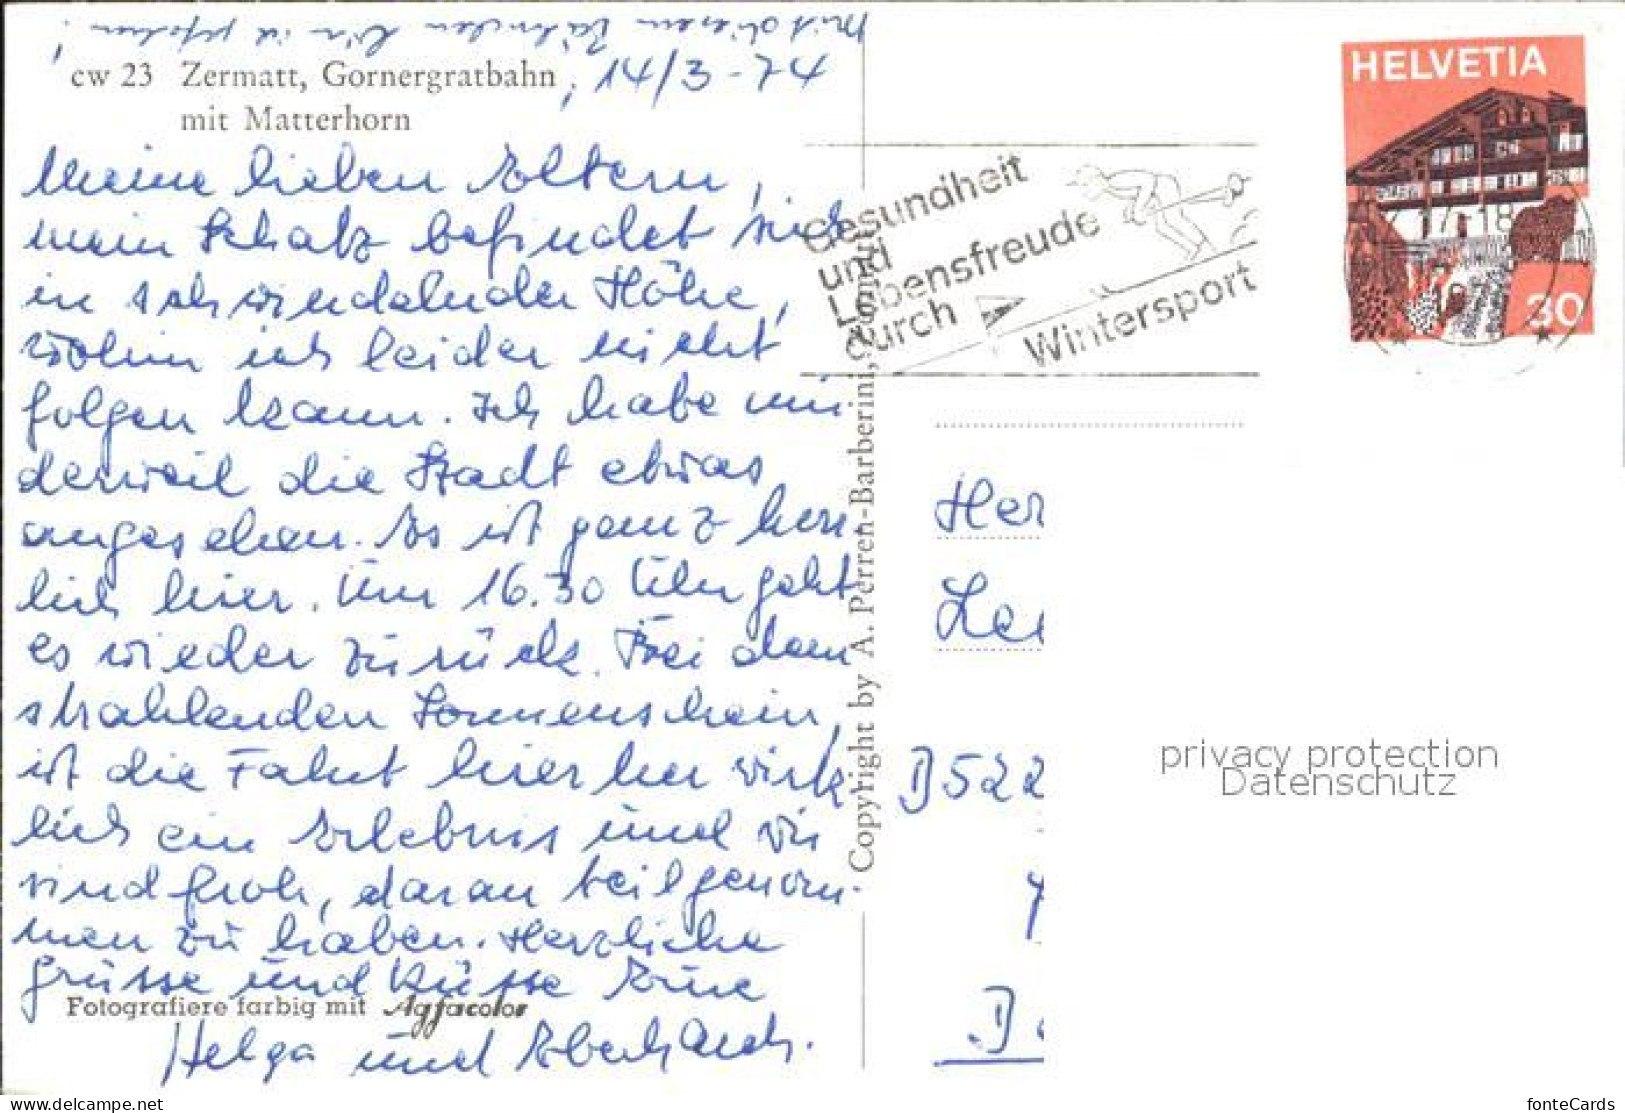 Mit diesem Bähnchen bin ich gefahren!
cw 23 Zermatt, Gornergratbahn, 14/3-74
mit Matterhorn
Meine lieben Eltern,
mein Schatz befindet sich
in schwindelnder Höhe,
wohin ich leider nicht
folgen kann. Ich habe mir
derweil die Stadt etwas
angesehen. Es ist ganz herr-
lich hier. Um 16.30 Uhr geht
es wieder zurück. Bei dem
strahlenden Sonnenschein,
ist die Fahrt hierher wirk-
lich ein Erlebnis und wir
sind froh, daran teilgenom-
men zu haben. Herzliche
Grüsse und Küsse Eure
Fotografiere farbig mit Agfacolor
Helga und Eberhard.
Copyright by A. Perren-Barberini, Zermatt
Gesundheit
und
Lebensfreude
durch
Wintersport
HELVETIA
17-18
30
Her
D 522
privacy protection
Datenschutz
https://www.delcampe.net
fonteCards